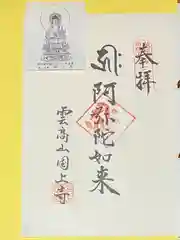 奉拝
阿弥陀如来
雲高山国上寺